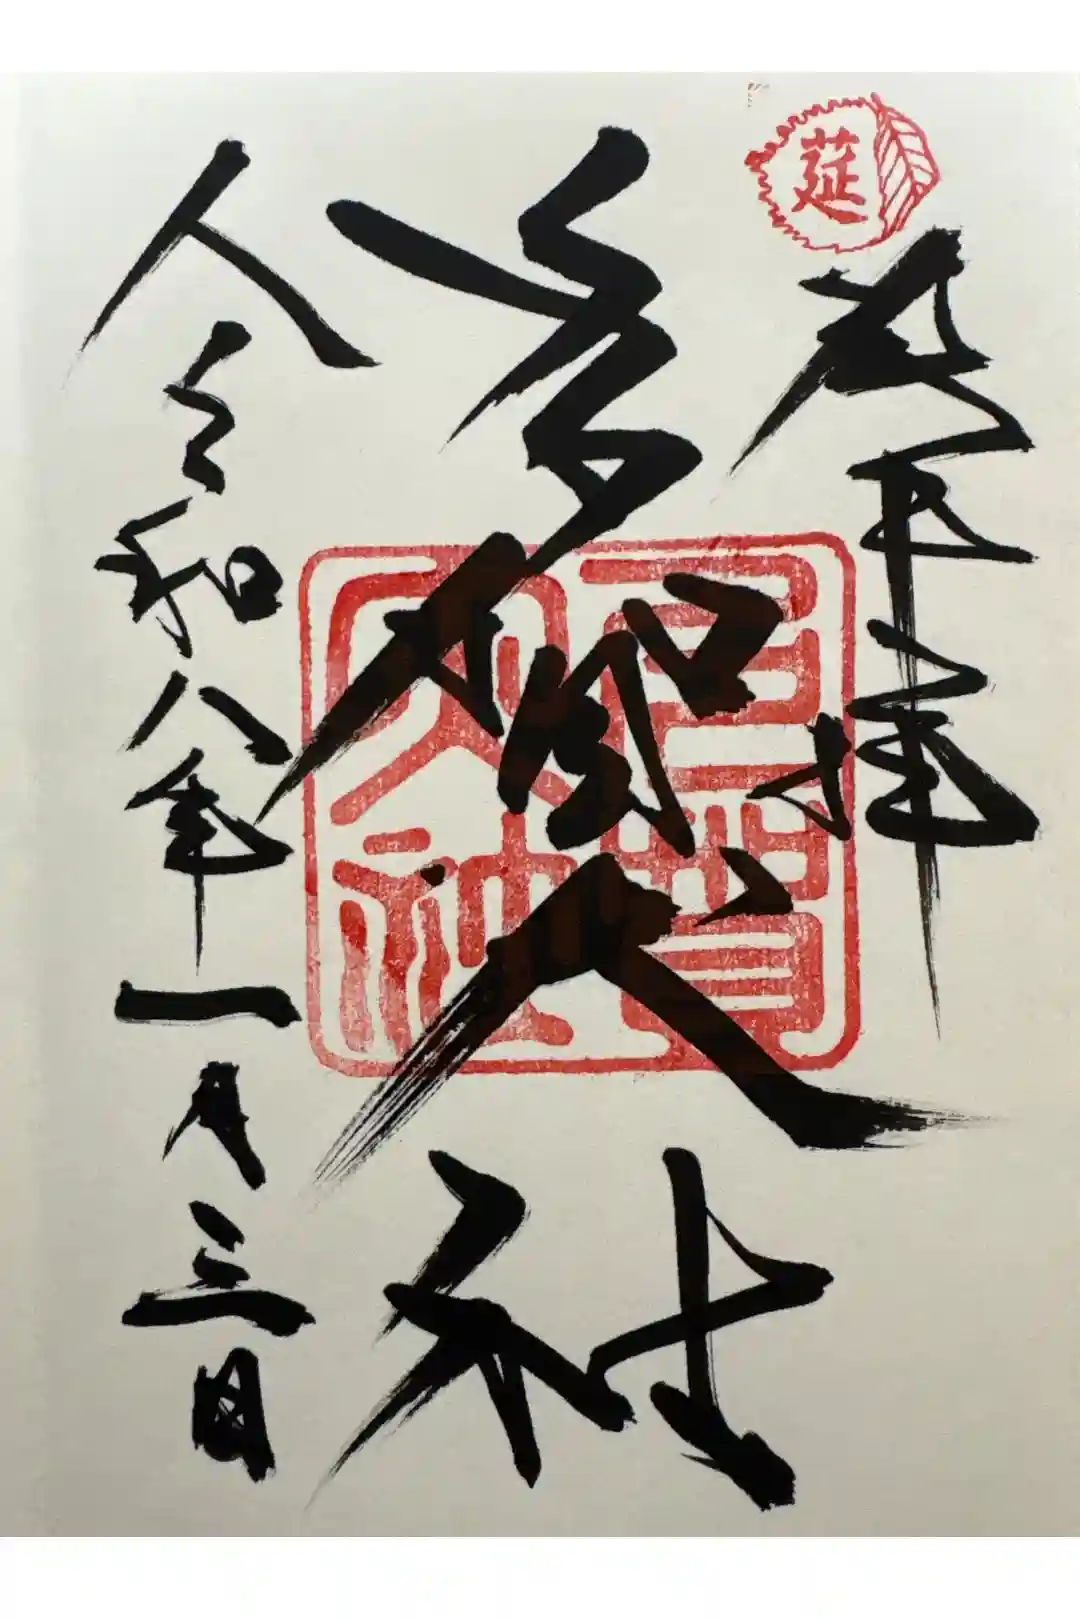 莚
拝
多賀大社
多賀大社
令和八年一月三日